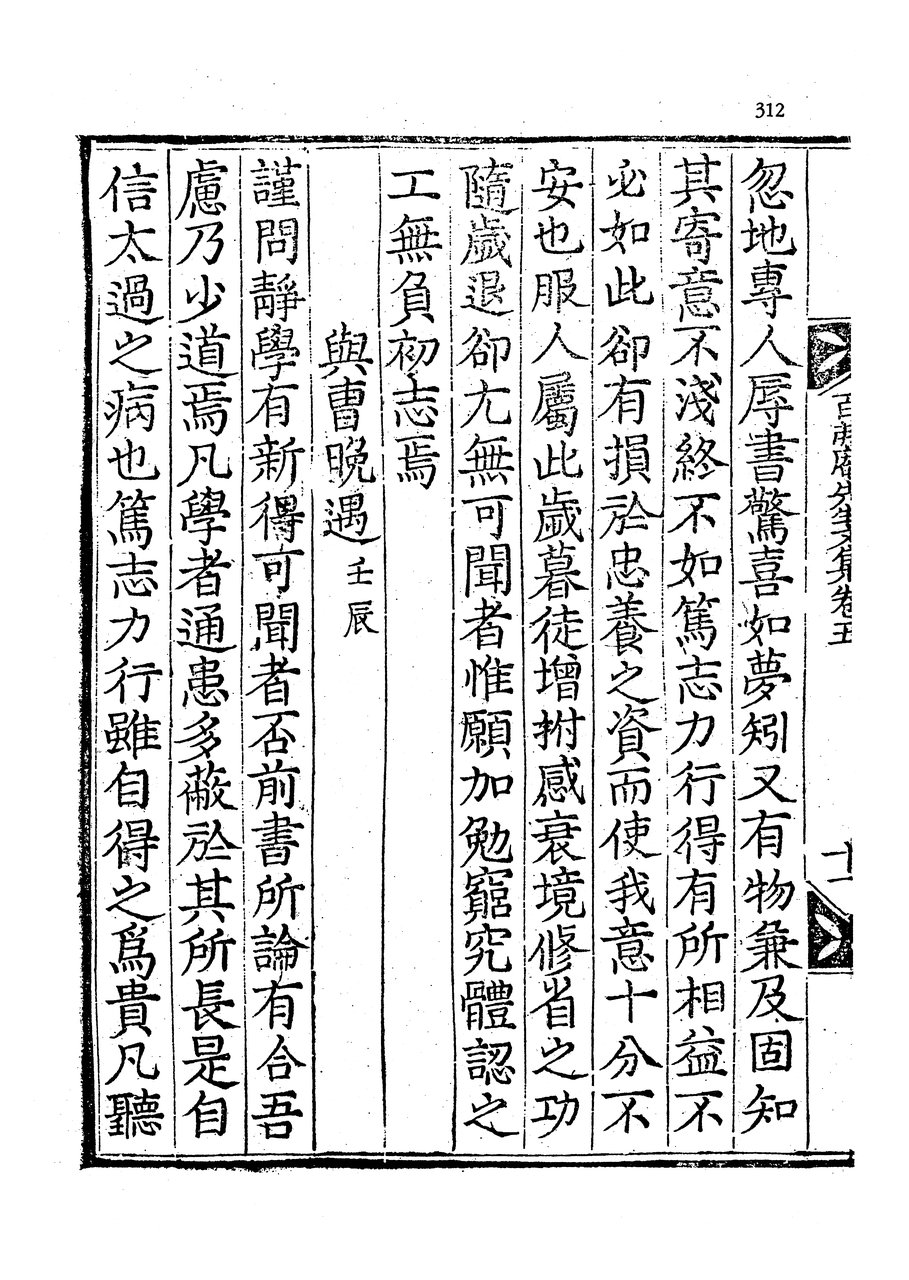 312
忽地專人辱書驚喜如夢矧又有物兼及固知
其寄意不淺終不如篤志力行得有所相益不
必如此卻有損於忠養之資而使我意十分不
安也服人屬此歲暮徒增拊感衰境修省之功
隨歲退卻尤無可聞者惟願加勉窮究體認之
工無負初志焉
與曺晩遇 壬辰
謹問靜學有新得可聞者否前書所論有合吾
慮乃少道焉凡學者通患多蔽於其所長是自
信太過之病也篤志力行雖自得之爲貴凡聽
先生文集卷五
十一